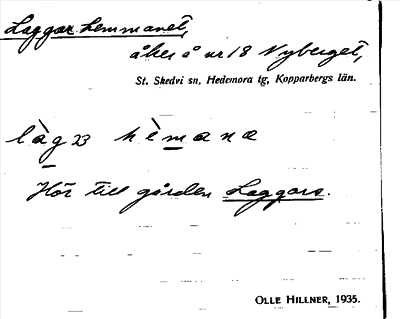 Laggar hemmanet,
åker å nr 18 Nyberget,
St. Skedvi sn, Hedemora tg, Kopparbergs län.
Hör till gården Laggars.
OLLE HILLNER, 1935.